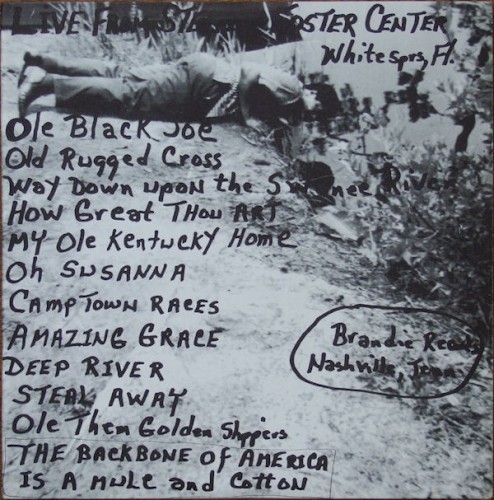 LIVE FROM OSTER CENTER
Whitesprs, Fl.
Ole Black Joe
Old Rugged Cross
Way Down upon the Swanee River
How Great Thou ART
My Ole Kentucky Home
Oh SUSANNA
CAMPTOWN RACES
AMAZING GRACE
DEEP RIVER
STEAL AWAY
Ole Them Golden Slippers
THE BACKBONE of AMERICA
IS A MULE and COTTON
Brandie
Nashville, Tenn.